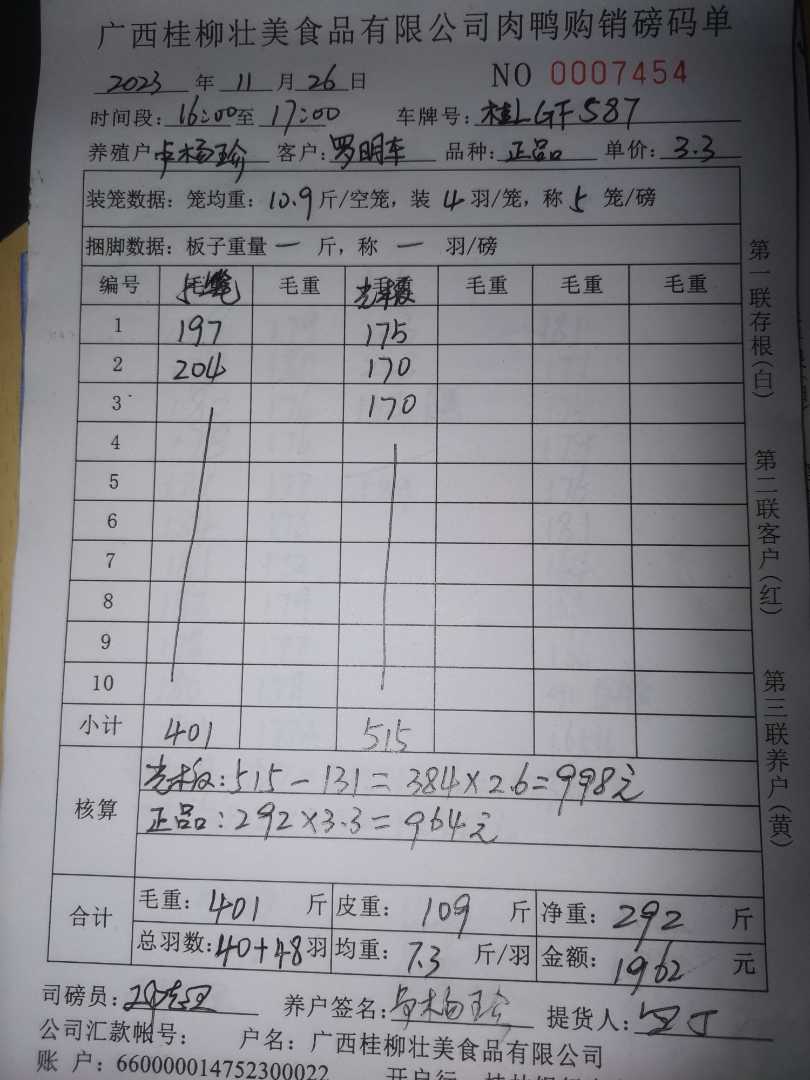 广西桂柳壮美食品有限公司肉鸭购销磅码单
2023 年 11 月 26 日 NO 0007454
时间段: 16:00 至 17:00 车牌号: 桂LGF587
养殖户 卢杨珍 客户: 罗明车 品种: 正品 单价: 3.3
装笼数据: 笼均重: 10.9 斤/空笼, 装 4 羽/笼, 称 5 笼/磅
捆脚数据: 板子重量 一 斤, 称 一 羽/磅
编号 毛重 光板 毛重 毛重 毛重
1 197 175
2 204 170
3 170
4
5
6
7
8
9
10
小计 401 515
核算
光板: 515 - 131 = 384 × 2.6 = 998元
正品: 292 × 3.3 = 964元
合计
毛重: 401 斤 皮重: 109 斤 净重: 292 斤
总羽数: 40+48 羽 均重: 7.3 斤/羽 金额: 1962 元
司磅员: 养户签名: 卢杨珍 提货人:
公司汇款帐号: 户名: 广西桂柳壮美食品有限公司
账 户: 660000014752300022 开户行:
第一联存根(白) 第二联客户(红) 第三联养户(黄)